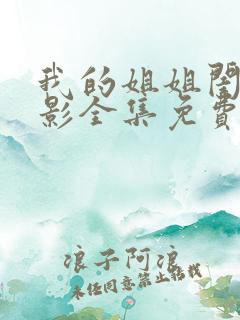 我的姐姐闺
影全集免费
浪子阿浪
未经同意禁止转载